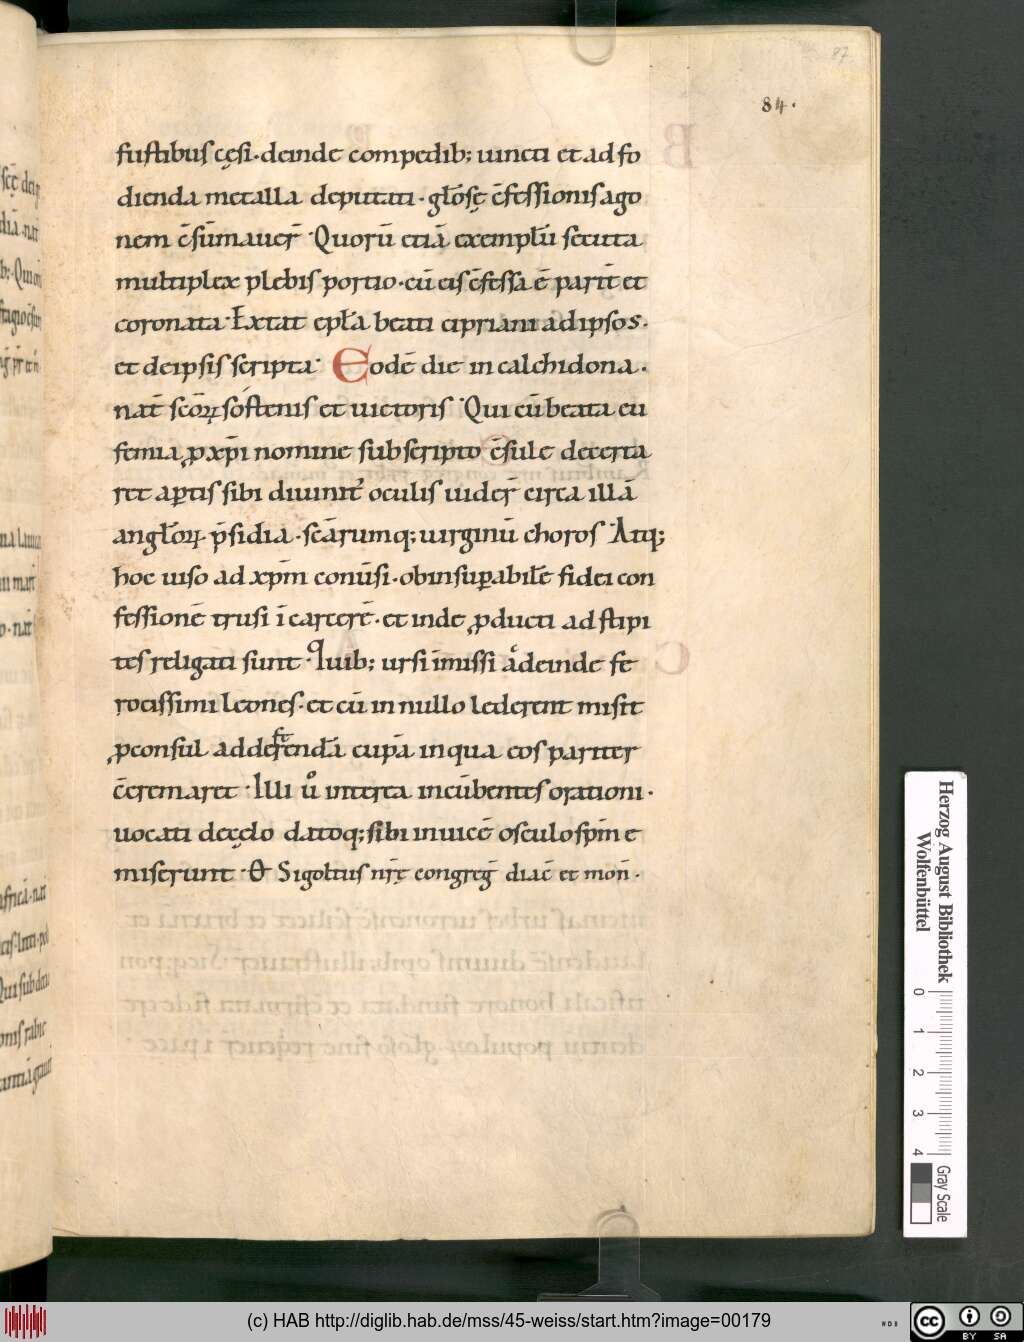 87
84.
fustibus cęsi· deinde compedib; uincti et ad fo
dienda metalla deputati· głosę c̄fessionis ago
nem c̄sūmauer̄ · Quorū etiā exemplū secuta
multiplex plebis portio· cū eis c̄fessa ē parit̄ et
coronata· Extat epła beati cipriani ad ipsos·
et de ipsis scripta· Eodē die in calchidona·
nat̄ scōꝝ sostenis et uictoris · Qui cū beata eu
femia, ꝓ xp̄i nomine subscripto c̄sule decerta
ret aꝑtis sibi diuinit᾽ oculis uider̄ circa illā
angłoꝝ· p̄sidia· scārumq; uirginū choros · Atq;
hoc uiso ad xp̄m conūsi· ob insuꝑabilē fidei con
fessionē trusi ī carcerē· et inde ꝓducti ad stipi
tes religati sunt · Quib; ursi īmissi ac̊ deinde fe
rocissimi leones· et cū in nullo lederent misit
ꝓconsul ad deferendā cupā in qua eos pariter
c̄cremaret · Illi ů interea incūbentes orationi·
uocati de cęlo datoq; sibi inuicē osculo sp̄m e
miserunt · & Sigoltus nr̄ę congreg̅ diac̄ et mon̄ ·
Herzog August Bibliothek
Wolfenbüttel
0 1 2 3 4
Gray Scale
(c) HAB http://diglib.hab.de/mss/45-weiss/start.htm?image=00179
WDB
cc BY SA